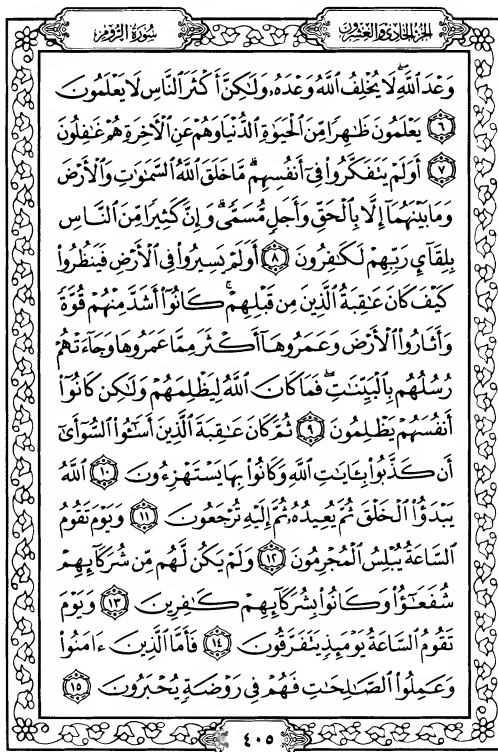 الجزء الحادي والعشرون
سورة الروم
وَعْدَ ٱللَّهِ ۖ لَا يُخْلِفُ ٱللَّهُ وَعْدَهُۥ وَلَٰكِنَّ أَكْثَرَ ٱلنَّاسِ لَا يَعْلَمُونَ
٦ يَعْلَمُونَ ظَٰهِرًا مِّنَ ٱلْحَيَوٰةِ ٱلدُّنْيَا وَهُمْ عَنِ ٱلْءَاخِرَةِ هُمْ غَٰفِلُونَ
٧ أَوَلَمْ يَتَفَكَّرُوا۟ فِىٓ أَنفُسِهِم ۗ مَّا خَلَقَ ٱللَّهُ ٱلسَّمَٰوَٰتِ وَٱلْأَرْضَ
وَمَا بَيْنَهُمَآ إِلَّا بِٱلْحَقِّ وَأَجَلٍ مُّسَمًّى ۗ وَإِنَّ كَثِيرًا مِّنَ ٱلنَّاسِ
بِلِقَآئِ رَبِّهِمْ لَكَٰفِرُونَ ٨ أَوَلَمْ يَسِيرُوا۟ فِى ٱلْأَرْضِ فَيَنظُرُوا۟
كَيْفَ كَانَ عَٰقِبَةُ ٱلَّذِينَ مِن قَبْلِهِمْ ۚ كَانُوٓا۟ أَشَدَّ مِنْهُمْ قُوَّةً
وَأَثَارُوا۟ ٱلْأَرْضَ وَعَمَرُوهَآ أَكْثَرَ مِمَّا عَمَرُوهَا وَجَآءَتْهُمْ
رُسُلُهُم بِٱلْبَيِّنَٰتِ ۖ فَمَا كَانَ ٱللَّهُ لِيَظْلِمَهُمْ وَلَٰكِن كَانُوٓا۟
أَنفُسَهُمْ يَظْلِمُونَ ٩ ثُمَّ كَانَ عَٰقِبَةَ ٱلَّذِينَ أَسَٰٓـُٔوا۟ ٱلسُّوٓأَىٰٓ
أَن كَذَّبُوا۟ بِـَٔايَٰتِ ٱللَّهِ وَكَانُوا۟ بِهَا يَسْتَهْزِءُونَ ١٠ ٱللَّهُ
يَبْدَؤُا۟ ٱلْخَلْقَ ثُمَّ يُعِيدُهُۥ ثُمَّ إِلَيْهِ تُرْجَعُونَ ١١ وَيَوْمَ تَقُومُ
ٱلسَّاعَةُ يُبْلِسُ ٱلْمُجْرِمُونَ ١٢ وَلَمْ يَكُن لَّهُم مِّن شُرَكَآئِهِمْ
شُفَعَٰٓؤُا۟ وَكَانُوا۟ بِشُرَكَآئِهِمْ كَٰفِرِينَ ١٣ وَيَوْمَ
تَقُومُ ٱلسَّاعَةُ يَوْمَئِذٍ يَتَفَرَّقُونَ ١٤ فَأَمَّا ٱلَّذِينَ ءَامَنُوا۟
وَعَمِلُوا۟ ٱلصَّٰلِحَٰتِ فَهُمْ فِى رَوْضَةٍ يُحْبَرُونَ ١٥
٤٠٥